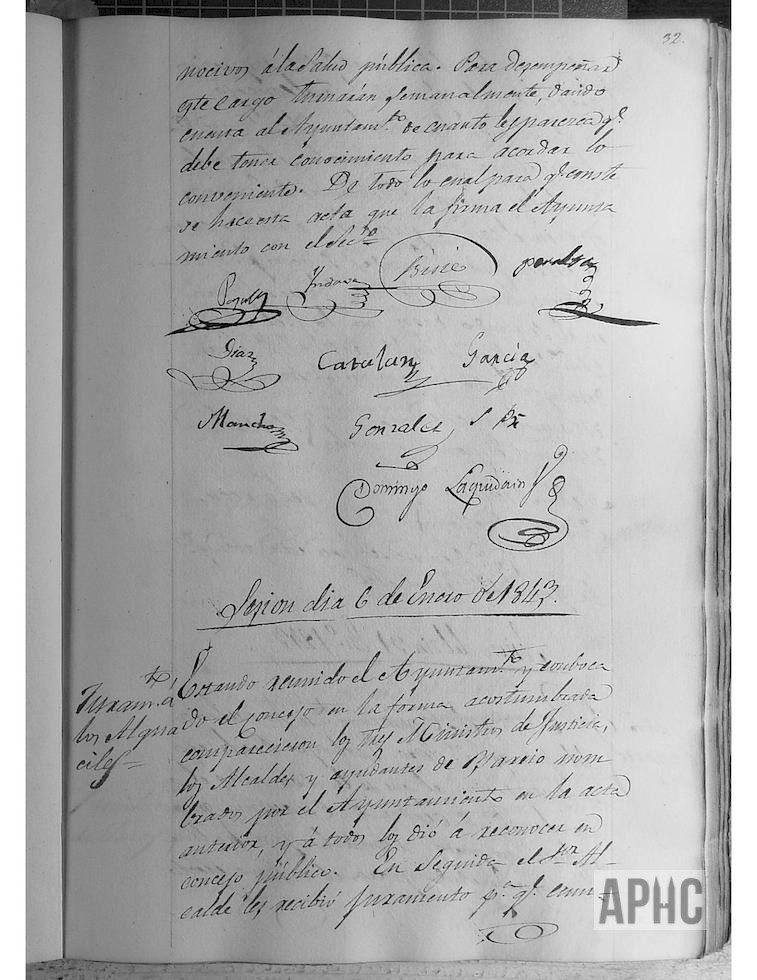 32.
nocivos á la Salud pública. Para desempeñar
este cargo turnarán semanalmente, dando
cuenta al Ayuntam.to de cuanto les parezca q.e
debe tener conocimiento para acordar lo
conveniente. De todo lo cual para q.e conste
se hace esta acta que la firma el Ayunta
miento con el Sec.rio
Yndava Birie peralta
Diaz Catalan Garcia
Mancho Gonzalez
Domingo
Sesion dia 6 de Enero de 1843.
Juram.to á
los Algua
ciles
Estando reunido el Ayuntam.to y convoca
do el Concejo en la forma acostumbrada
comparecieron los tres Ministros de Justicia,
los Alcaldes y ayudantes de Barrio nom
brados por el Ayuntamiento en la acta
anterior, y á todos los dió á reconocer en
concejo público. En seguida el S.or Al-
calde les recibió juramento p.a q.e cum-
APHC